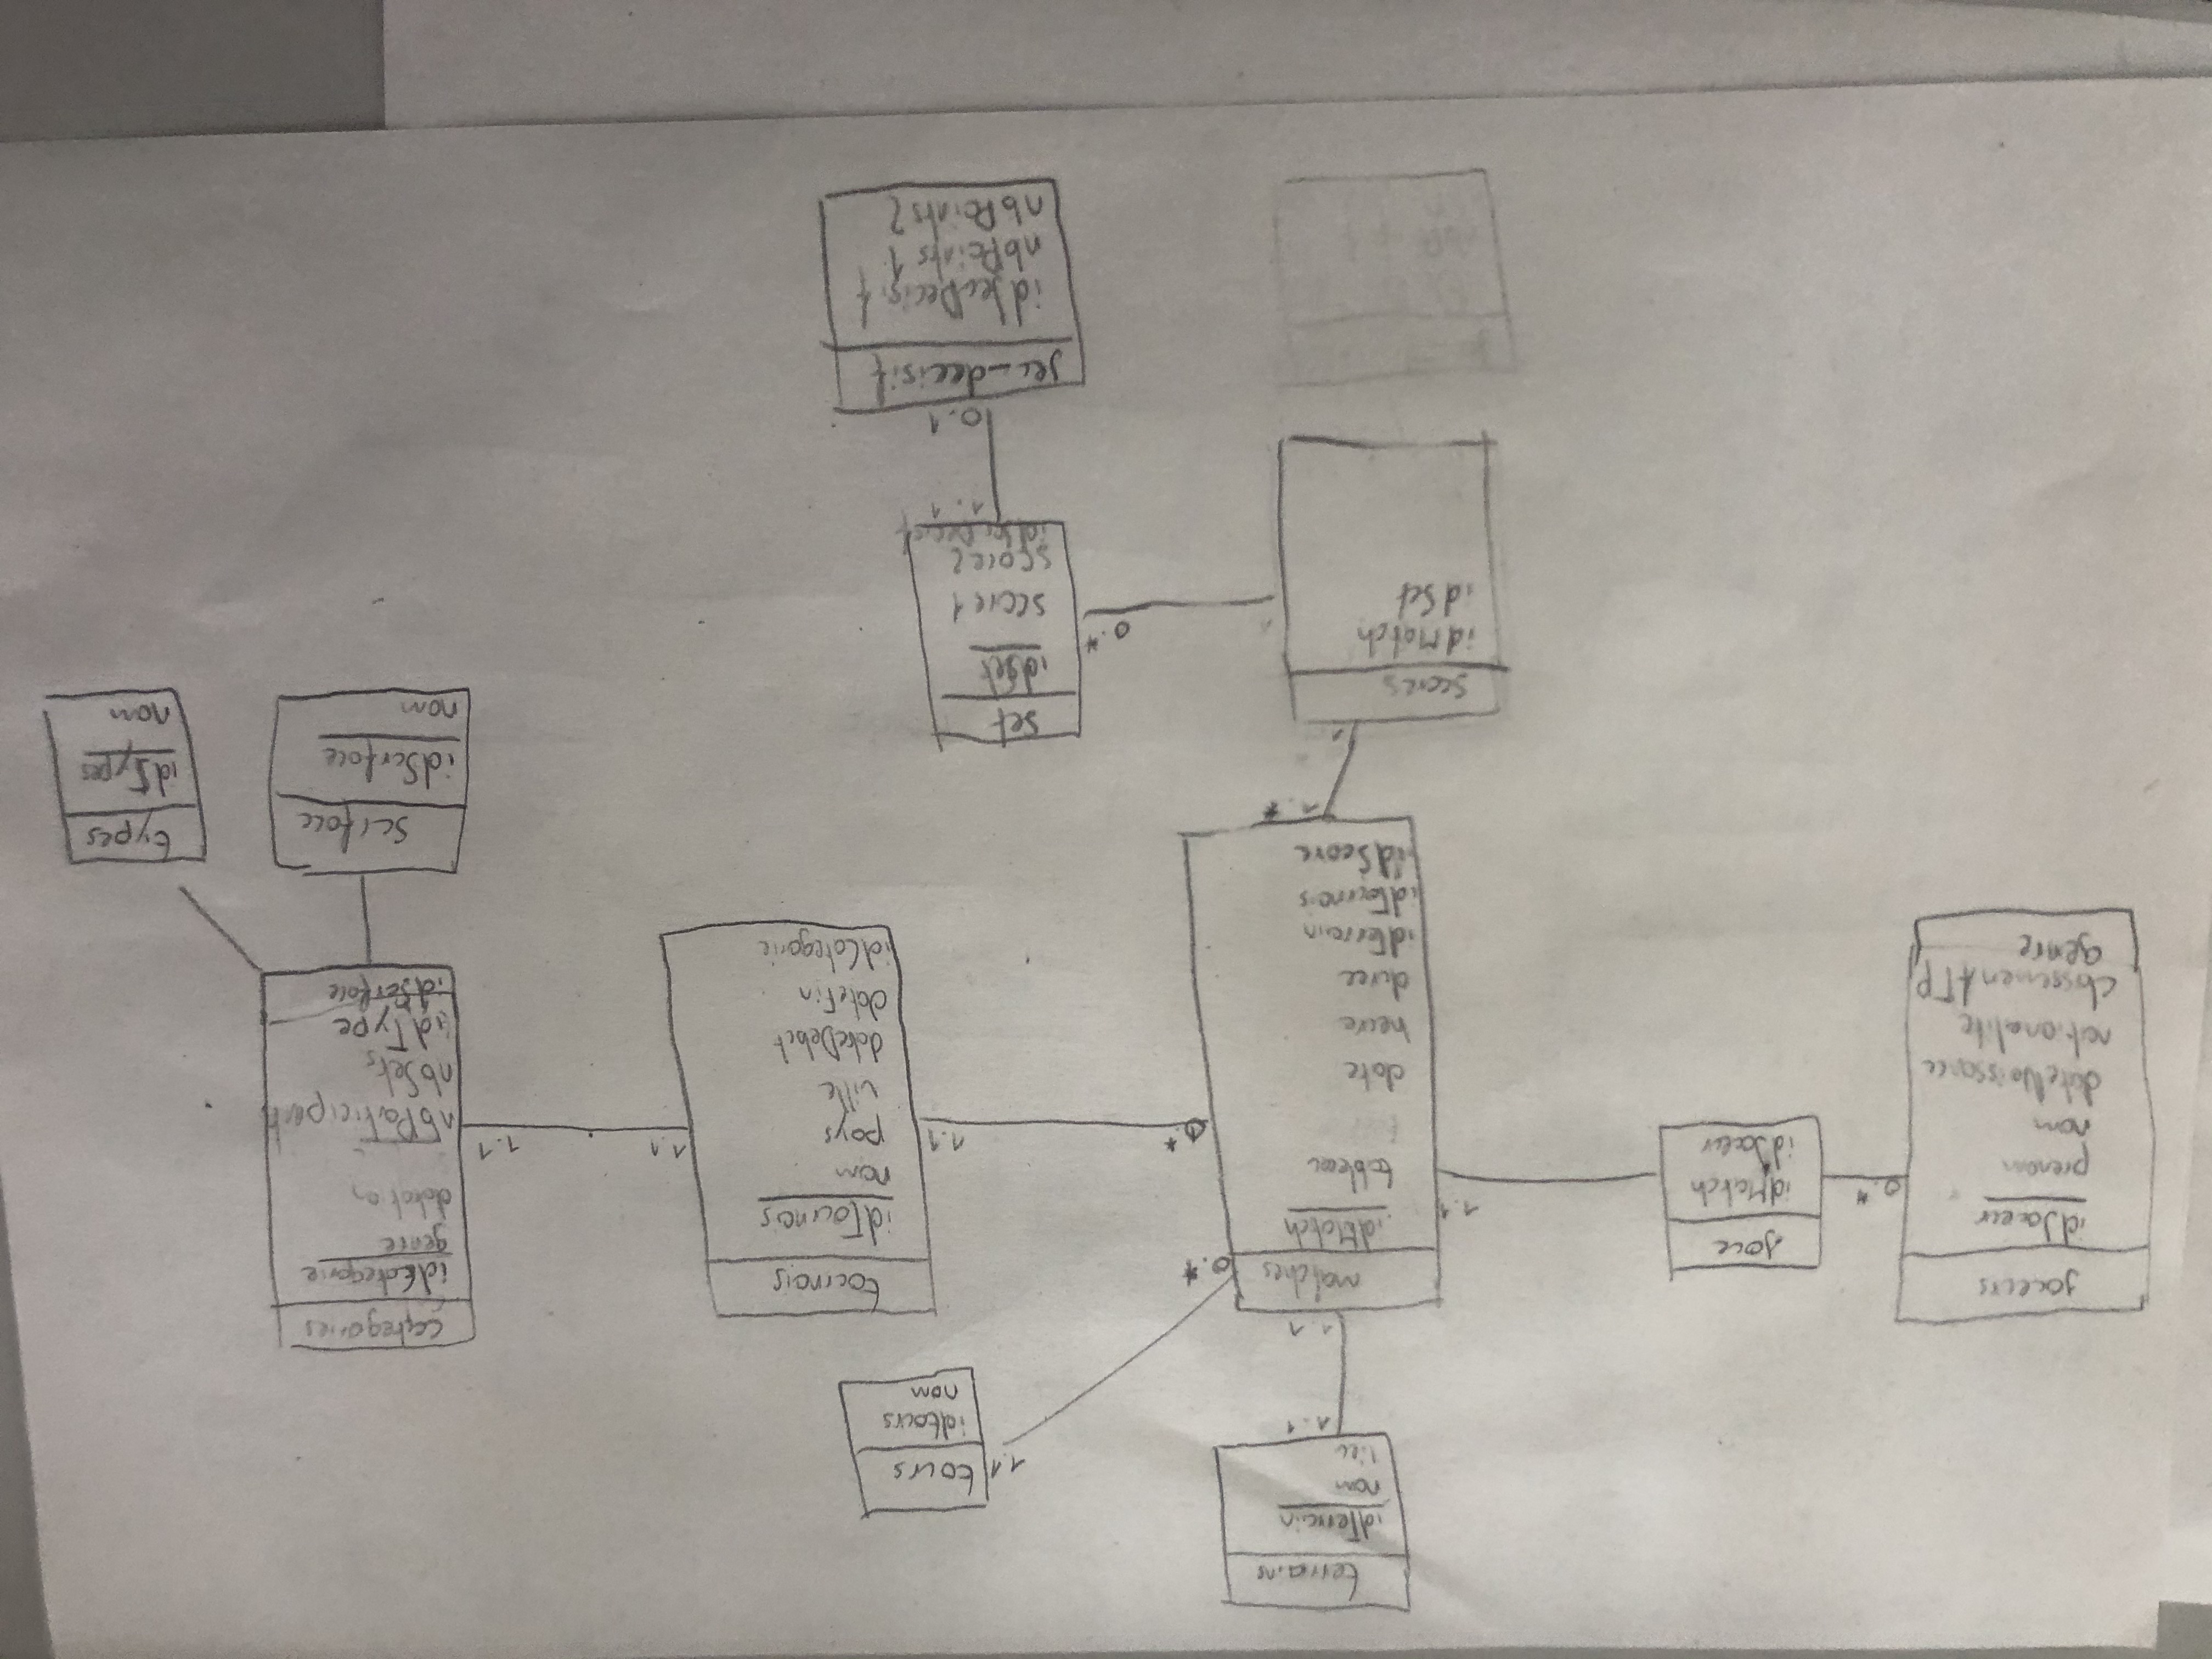 terrains
idTerrain
nom
lieu
1.1
1.1
tours
idtours
nom
1.1
0.*
joueurs
idJoueur
prenom
nom
dateNaissance
nationalite
classemenATP
genre
0.*
joue
idMatch
idJoueur
1.1
matches
idMatch
tableau
date
heure
duree
idTerrain
idTournois
idScore
0.*
1.1
tournois
idTournois
nom
pays
ville
dateDebut
dateFin
idCategorie
1.1
1.1
categories
idCategorie
genre
dotation
nbParticipants
nbSets
idType
idSurface
surface
idSurface
nom
types
idTypes
nom
1.*
1
scores
idMatch
idSet
0.*
set
idSet
score1
score2
idJeuDecisif
1.1
0.1
jeu_decisif
idJeuDecisif
nbPoints1
nbPoints2